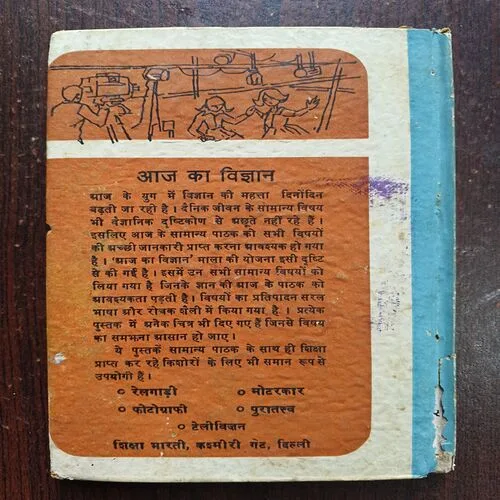 आज का विज्ञान
आज के युग में विज्ञान की महत्ता दिनोंदिन
बढ़ती जा रही है। दैनिक जीवन के सामान्य विषय
भी वैज्ञानिक दृष्टिकोण से अछूते नहीं रहे हैं।
इसलिए आज के सामान्य पाठक को सभी विषयों
की अच्छी जानकारी प्राप्त करना आवश्यक हो गया
है। 'आज का विज्ञान' माला की योजना इसी दृष्टि
से की गई है। इसमें उन सभी सामान्य विषयों को
लिया गया है जिनके ज्ञान की आज के पाठक को
आवश्यकता पड़ती है। विषयों का प्रतिपादन सरल
भाषा और रोचक शैली में किया गया है। प्रत्येक
पुस्तक में अनेक चित्र भी दिए गए हैं जिनसे विषय
का समझना आसान हो जाए।
ये पुस्तकें सामान्य पाठक के साथ ही शिक्षा
प्राप्त कर रहे किशोरों के लिए भी समान रूप से
उपयोगी हैं।
० रेलगाड़ी ० मोटरकार
० फोटोग्राफी ० पुरातत्त्व
० टेलीविज़न
शिक्षा भारती, कश्मीरी गेट, दिल्ली